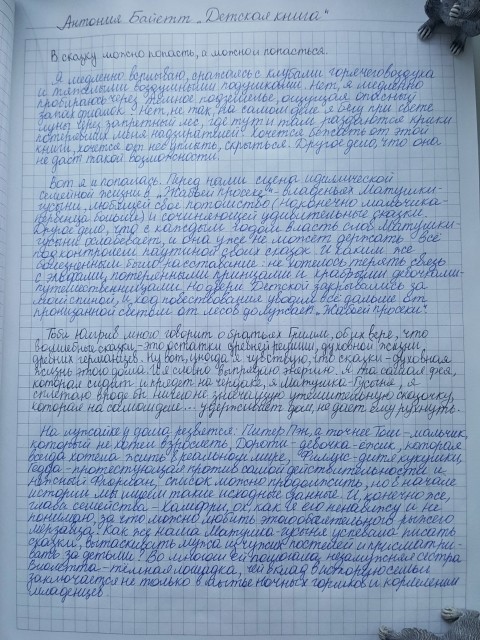 Антония Байетт „Детская книга“
В сказку можно попасть, а можно и попасться.
Я медленно всплываю, сражаясь с клубами горячего воздуха
и тяжёлыми воздушными подушками. Нет, я медленно
пробираюсь через тёмное подземелье, ощущая опасный
запах фиалок. Нет, не так, на самом деле я бегу при свете
луны через запретный лес, где тут и там раздаются крики
потерявших меня надзирателей. Хочется бежать от этой
книги, хочется от неё улететь, скрыться. Другое дело, что она
не даст такой возможности.
Вот я и попалась. Перед нами сцена идиллической
семейной жизни в „Живой просеке“ - владенья Матушки-
гусыни, любящей своё потомство (наконечно мальчика-
первенца больше) и сочиняющей удивительные сказки.
Другое дело, что с каждым годом власть слов Матушки-
гусыни ослабевает, и она уже не может держать всё
под контролем паутиной своих сказок. И каким же
освещённым было расставание - не хотелось терять связь
с эльфами, потерянными принцами и храбрыми девочками-
путешественницами. Но двери Детской закрывались за
моей спиной, и ход повествования уводил всё дальше от
пронизанной светом от лесов до лужаек „Живой просеки“.
Тоби Юнгрив много говорит о братьях Гримм, об их вере, что
волшебные сказки - это остатки древней религии, духовной жизни
древних германцев. Ну вот, иногда я чувствую, что сказки - духовная
жизнь этого дома. И я словно выпрядаю энергию. Я та самая фея,
которая сидит и прядёт на чердаке, я Матушка-Гусыня, я
сплетаю вроде бы ничего не значащую утешительную сказочку,
которая на самом деле... удерживает дом, не даёт ему рухнуть.
На лужайке у дома резвятся: Питер Пэн, а точнее Том - мальчик,
который не хотел взрослеть, Дороти - девочка-ёжик, которая
всегда хотела жить в реальном мире, Филлис - дитя кукушки,
Гедда - протестующая против самой действительности и
нежный Флориан, список можно продолжить, но в начале
истории мы имеем такие исходные данные. И, конечно же,
глава семейства - Хамфри, ох, как я его ненавижу и не
понимаю, за что можно любить этого обаятельного рыжего
мерзавца. Как же наша Матушка-гусыня успевала писать
сказки, вытаскивать мужа из чужих постелей и присматри-
вать за детьми? В помощи ей родимая, незамужняя сестра
Виолетта - тёмная лошадка, чей вклад в историю семьи
заключается не только в мытье ночных горшков и кормлении
младенцев.